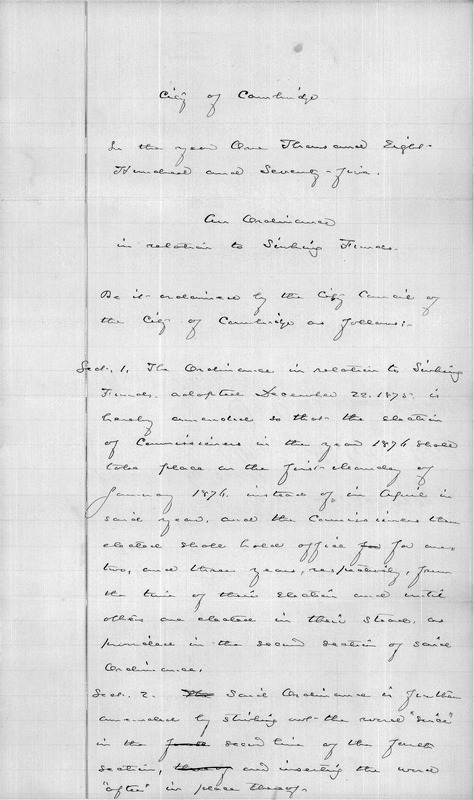 City of Cambridge
In the year One Thousand Eight
Hundred and Seventy-five.
An Ordinance
in relation to Sinking Funds.
Be it ordained by the City Council of
the City of Cambridge as follows:-
Sect. 1. The Ordinance in relation to Sinking
Funds, adopted December 22, 1875, is
hereby amended so that the election
of Commissioners in the year 1876 shall
take place on the first Monday of
January 1876, instead of in April in
said year, and the Commissioners then
elected shall hold office for for one,
two, and three years, respectively, from
the time of their election and until
others are elected in their stead, as
provided in the second section of said
Ordinance.
Sect. 2. The Said Ordinance is further
amended by striking out the word
in the second line of the fourth
section, thereof and inserting the word
"after" in place thereof.